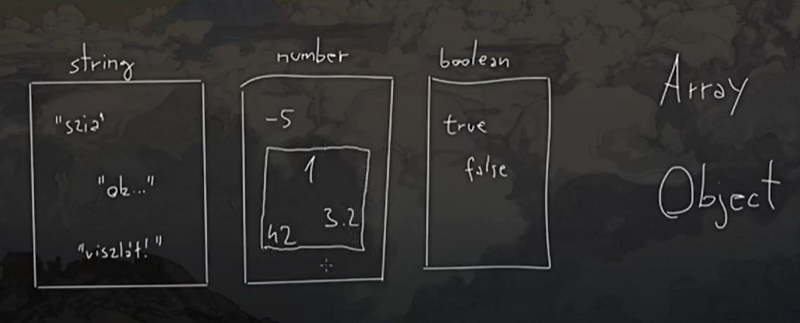 string
"szia"
"ok..."
"viszlát!"
number
-5
1
3.2
42
boolean
true
false
Array
Object